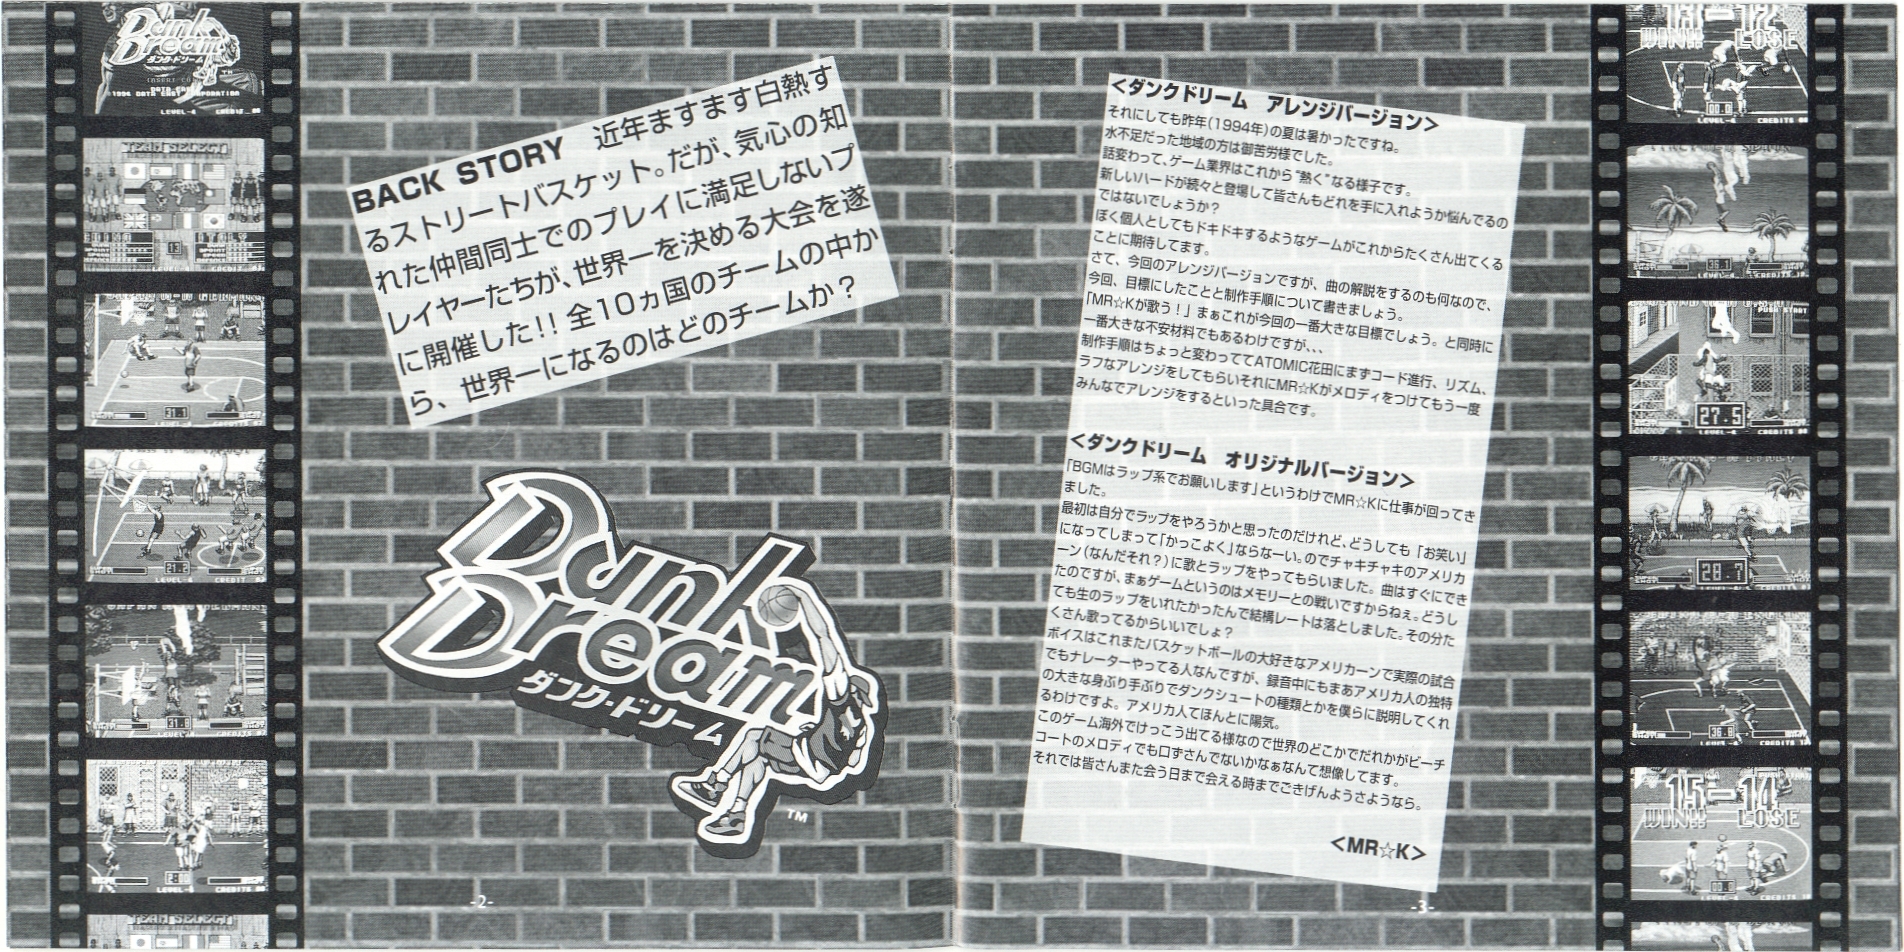 Dunk
Dream
ダンク・ドリーム
1994 DATA EAST CORPORATION
LEVEL-4
TEAM SELECT
13
31.1
LEVEL-4
21.2
LEVEL-4
31.8
LEVEL-4
LEVEL-4
TEAM SELECT
BACK STORY 近年ますます白熱す
るストリートバスケット。だが、気心の知
れた仲間同士でのプレイに満足しないプ
レイヤーたちが、世界一を決める大会を遂
に開催した!! 全10ヵ国のチームの中か
ら、世界一になるのはどのチームか？
Dunk
Dream
ダンク・ドリーム
TM
-2-
<ダンクドリーム アレンジバージョン>
それにしても昨年(1994年)の夏は暑かったですね。
水不足だった地域の方は御苦労様でした。
話変わって、ゲーム業界はこれから“熱く”なる様子です。
新しいハードが続々と登場して皆さんもどれを手に入れようか悩んでるの
ではないでしょうか？
ぼく個人としてもドキドキするようなゲームがこれからたくさん出てくる
ことに期待してます。
さて、今回のアレンジバージョンですが、曲の解説をするのも何なので、
今回、目標にしたことと制作手順について書きましょう。
「MR☆Kが歌う！」まぁこれが今回の一番大きな目標でしょう。と同時に
一番大きな不安材料でもあるわけですが、、、
制作手順はちょっと変わっててATOMIC花田にまずコード進行、リズム、
ラフなアレンジをしてもらいそれにMR☆Kがメロディをつけてもう一度
みんなでアレンジをするといった具合です。
<ダンクドリーム オリジナルバージョン>
「BGMはラップ系でお願いします」というわけでMR☆Kに仕事が回ってき
ました。
最初は自分でラップをやろうかと思ったのだけれど、どうしても「お笑い」
になってしまって「かっこよく」ならなーい。のでチャキチャキのアメリカ
ーン(なんだそれ？)に歌とラップをやってもらいました。曲はすぐにでき
たのですが、まぁゲームというのはメモリーとの戦いですからねぇ。どうし
ても生のラップをいれたかったんで結構レートは落としました。その分た
くさん歌ってるからいいでしょ？
ボイスはこれまたバスケットボールの大好きなアメリカーンで実際の試合
でもナレーターやってる人なんですが、録音中にもまあアメリカ人の独特
の大きな身ぶり手ぶりでダンクシュートの種類とかを僕らに説明してくれ
るわけですよ。アメリカ人てほんとに陽気。
このゲーム海外でけっこう出てる様なので世界のどこかでだれかがビーチ
コートのメロディでも口ずさんでないかなぁなんて想像してます。
それでは皆さんまた会う日まで会える時までごきげんようさようなら。
<MR☆K>
-3-
13-12
WIN!! LOSE
00.0
LEVEL-4
36.1
LEVEL-4
PUSH START
27.5
LEVEL-4
28.7
LEVEL-4
36.8
LEVEL-4
15-14
WIN!! LOSE
00.0
LEVEL-4